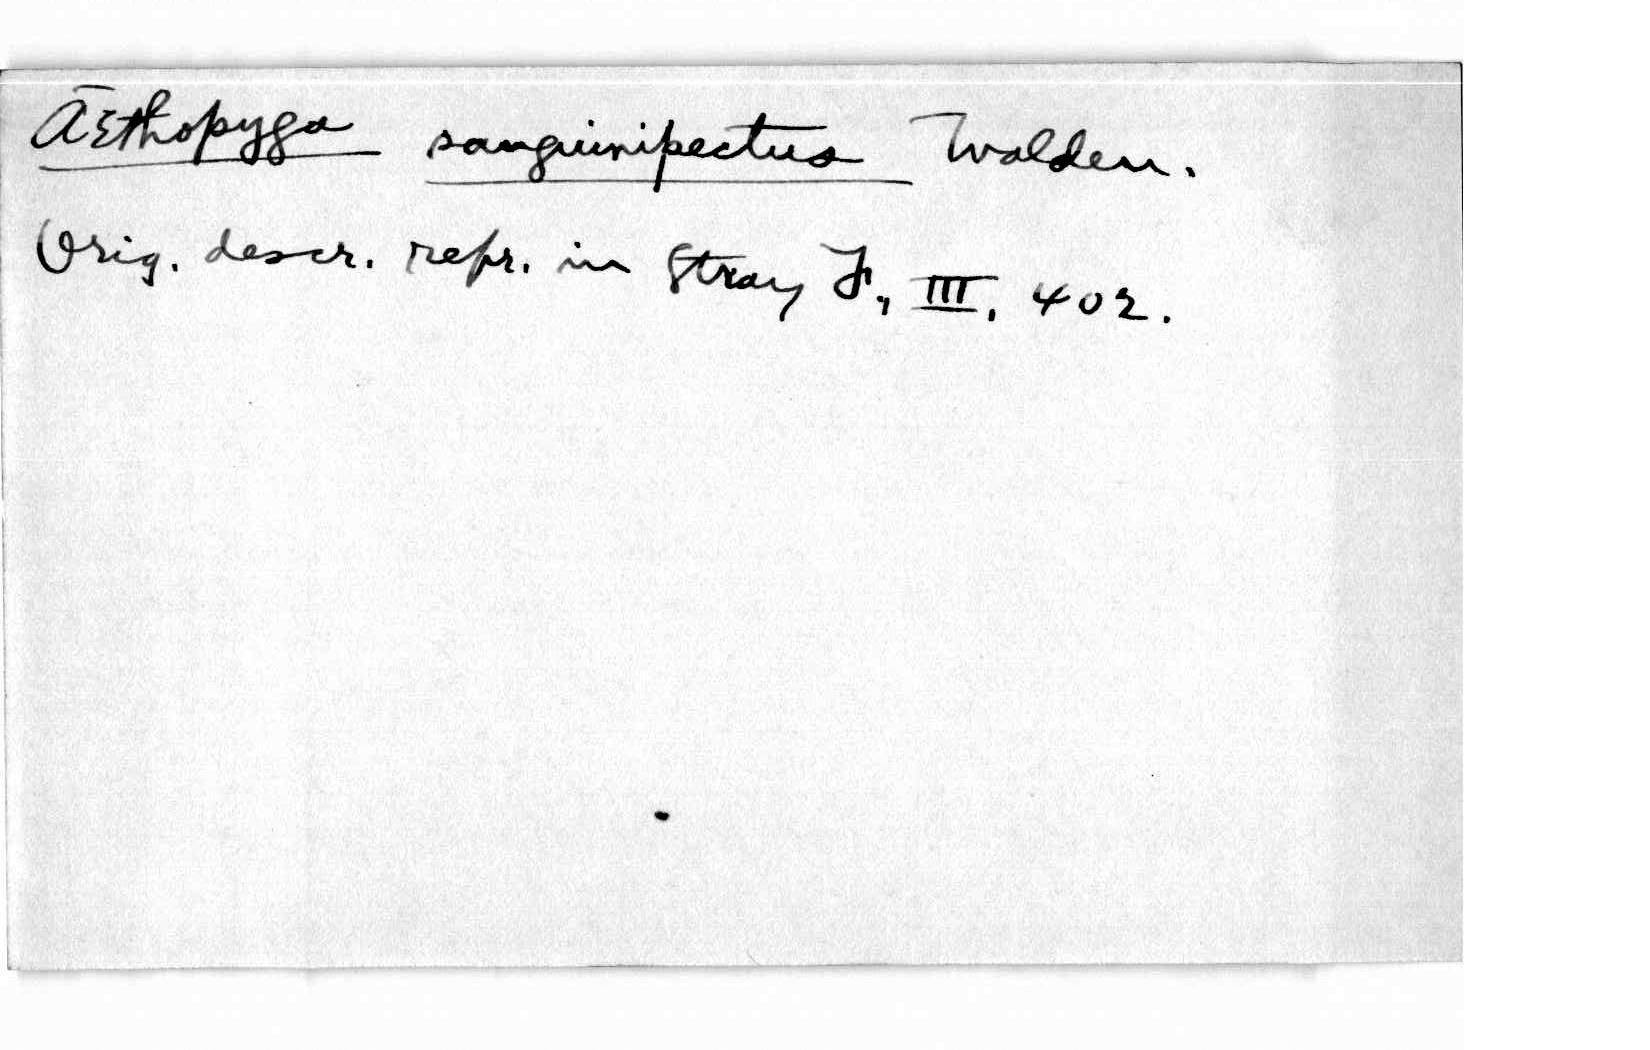 Æthopyga sanguinipectus Walden.
Orig. descr. repr. in Stray F., III, 402.